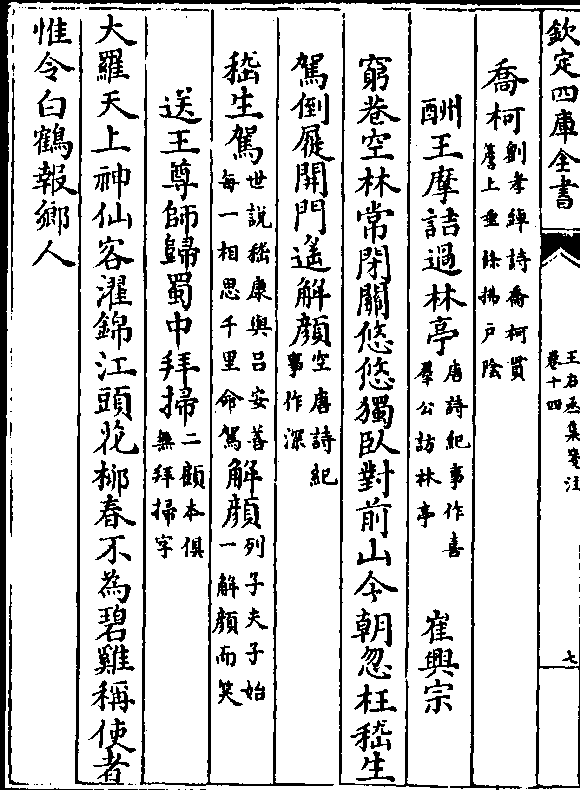 欽定四庫全書
王右丞集箋注
卷十四
七
喬柯劉孝綽詩喬柯貫簷上垂條拂户陰
酬王摩詰過林亭唐詩紀事作喜羣公訪林亭 崔興宗
窮巷空林常閉關悠悠獨臥對前山今朝忽枉嵇生
駕倒屣開門遙解顔空唐詩紀事作深
嵇生駕世說嵇康與呂安善每一相思千里命駕解顔列子夫子始一解顔而笑
送王尊師歸蜀中拜掃二顧本俱無拜掃字
大羅天上神仙客濯錦江頭花柳春不為碧雞稱使者
惟令白鶴報鄉人